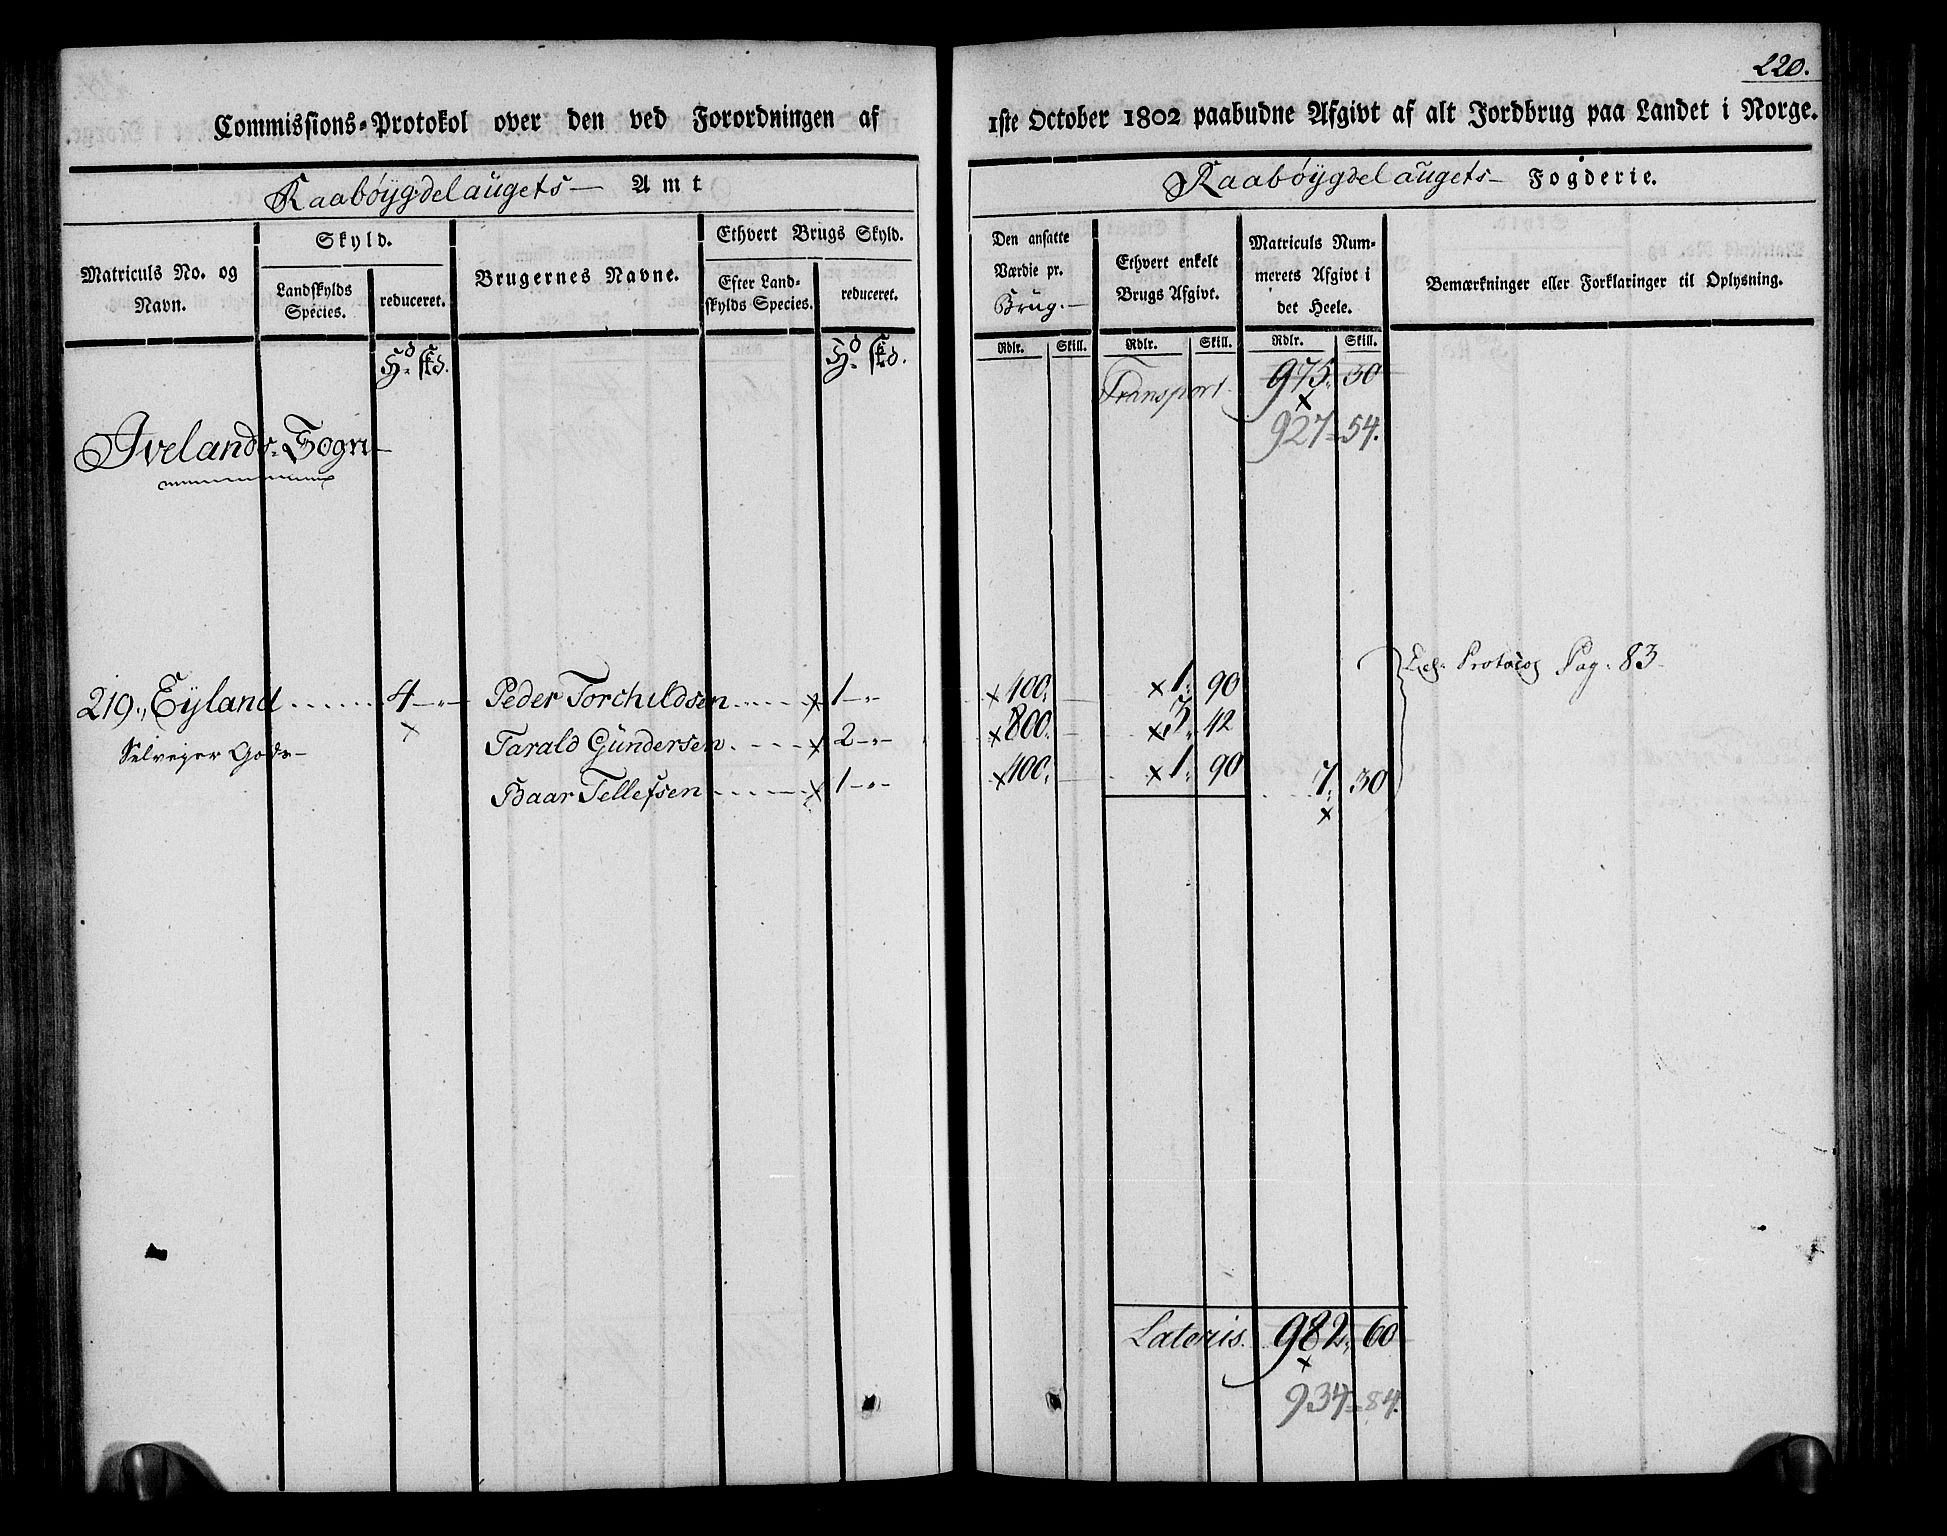 220.
Commissions-Protokol over den ved Forordningen af 1ste October 1802 paabudne Afgivt af alt Jordbrug paa Landet i Norge.
Raabøygdelaugets Amt
Raabøygdelaugets Fogderie.
Matriculs No. og Navn.
Skyld.
Landskylds Species.
reduceret.
Brugernes Navne.
Ethvert Brugs Skyld.
Efter Landskylds Species.
reduceret.
Den ansatte Værdie pr. Brug
Ethvert enkelt Brugs Afgivt.
Matriculs Nummerets Afgivt i det Heele.
Bemærkninger eller Forklaringer til Oplysning.
Hd. skd.
Hd. skd.
Rdlr. Skill.
Rdlr. Skill.
Rdlr. Skill.
Transport 975. 30
927=54.
Ivelands Sogn
219., Eyland ...... 4 Peder Torchildsen ..... x 1 x 400. x 1. 90 Protocoll Pag. 83
Selveyer Gods x Tarald Gundersen .... x 2 x 800. x 3. 42
Baar Tellefsen .... x 1 x 400. x 1. 90 7. 30
x
Lateris. 982. 60
x
934=84.